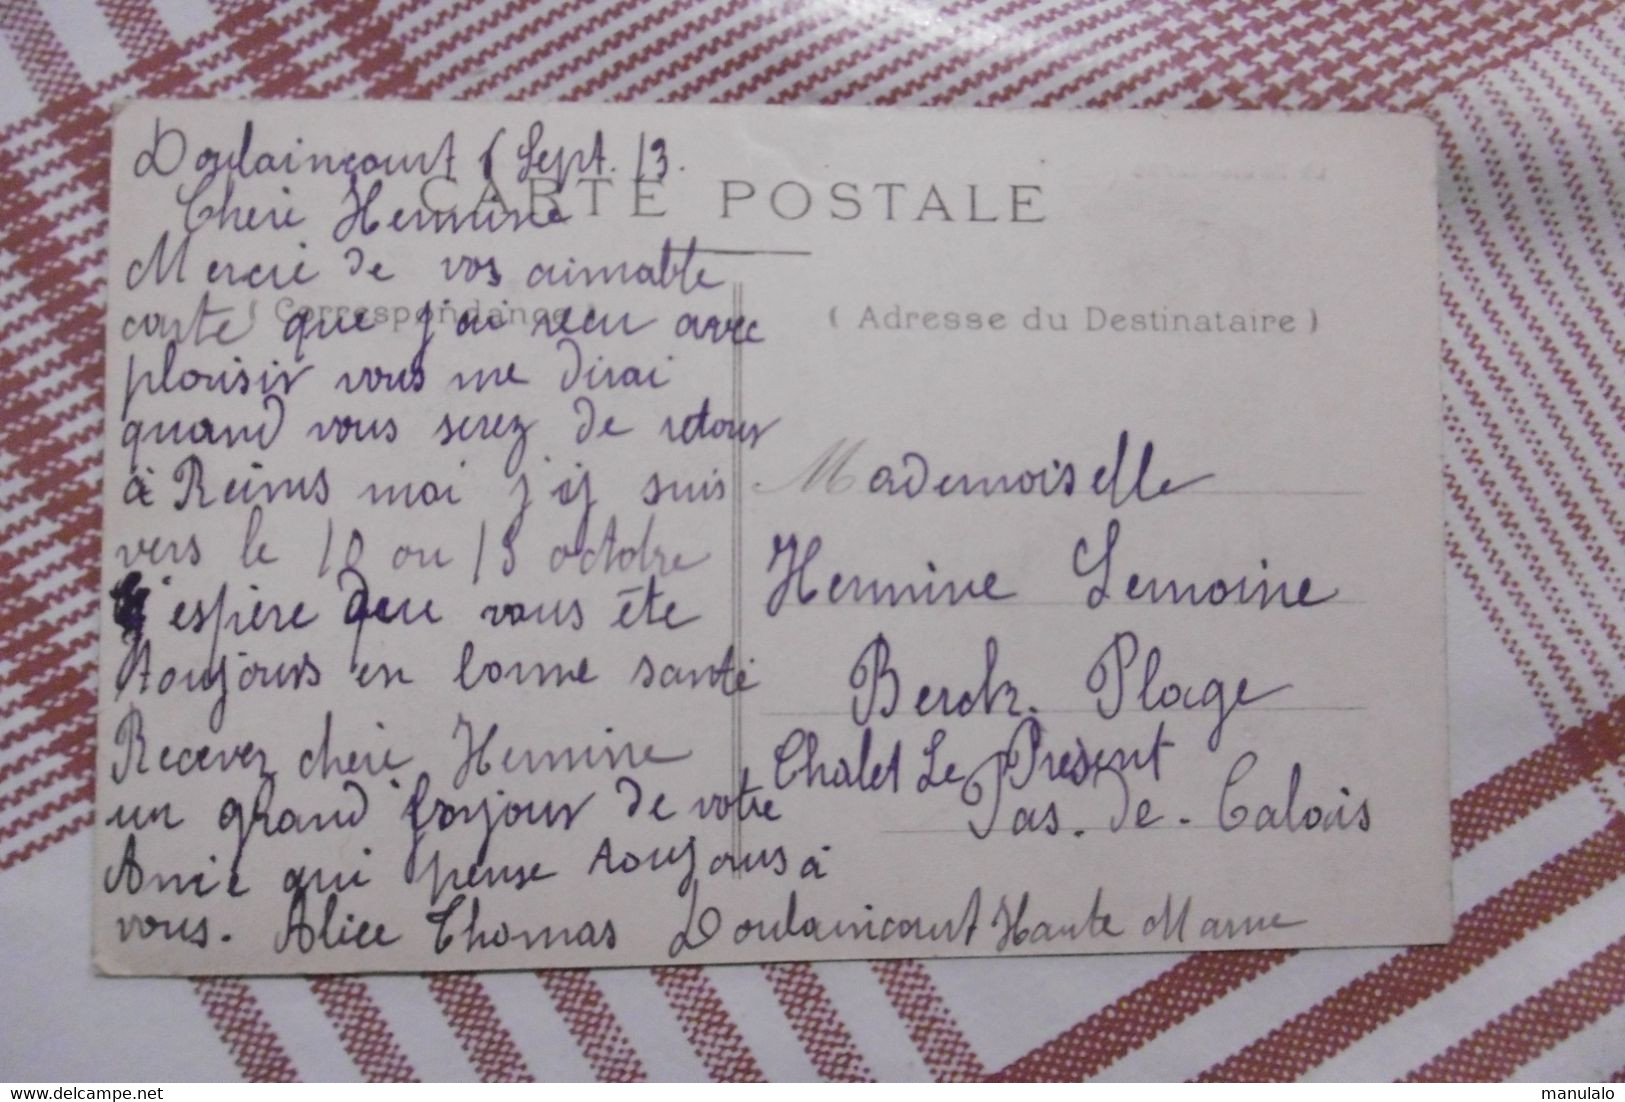 Doulaincourt 6 Sept. 13.
CARTE POSTALE
Cheri Hermine
Mercie de vos aimable
(Correspondance)
carte que j'ai recu avec
plaisir vous me dirai
quand vous serez de retour
à Reims moi j'ij suis
vers le 10 ou 15 octobre
j'espère que vous ête
toujours en bonne santé
Recevez cheri Hermine
un grand bonjour de votre
Amie qui pense toujours à
vous. Alice Thomas Doulaincourt Haute Marne
(Adresse du Destinataire)
Mademoiselle
Hermine Lemoine
Berck. Plage
Chalet Le Présent
Pas. de. Calais
manulalo